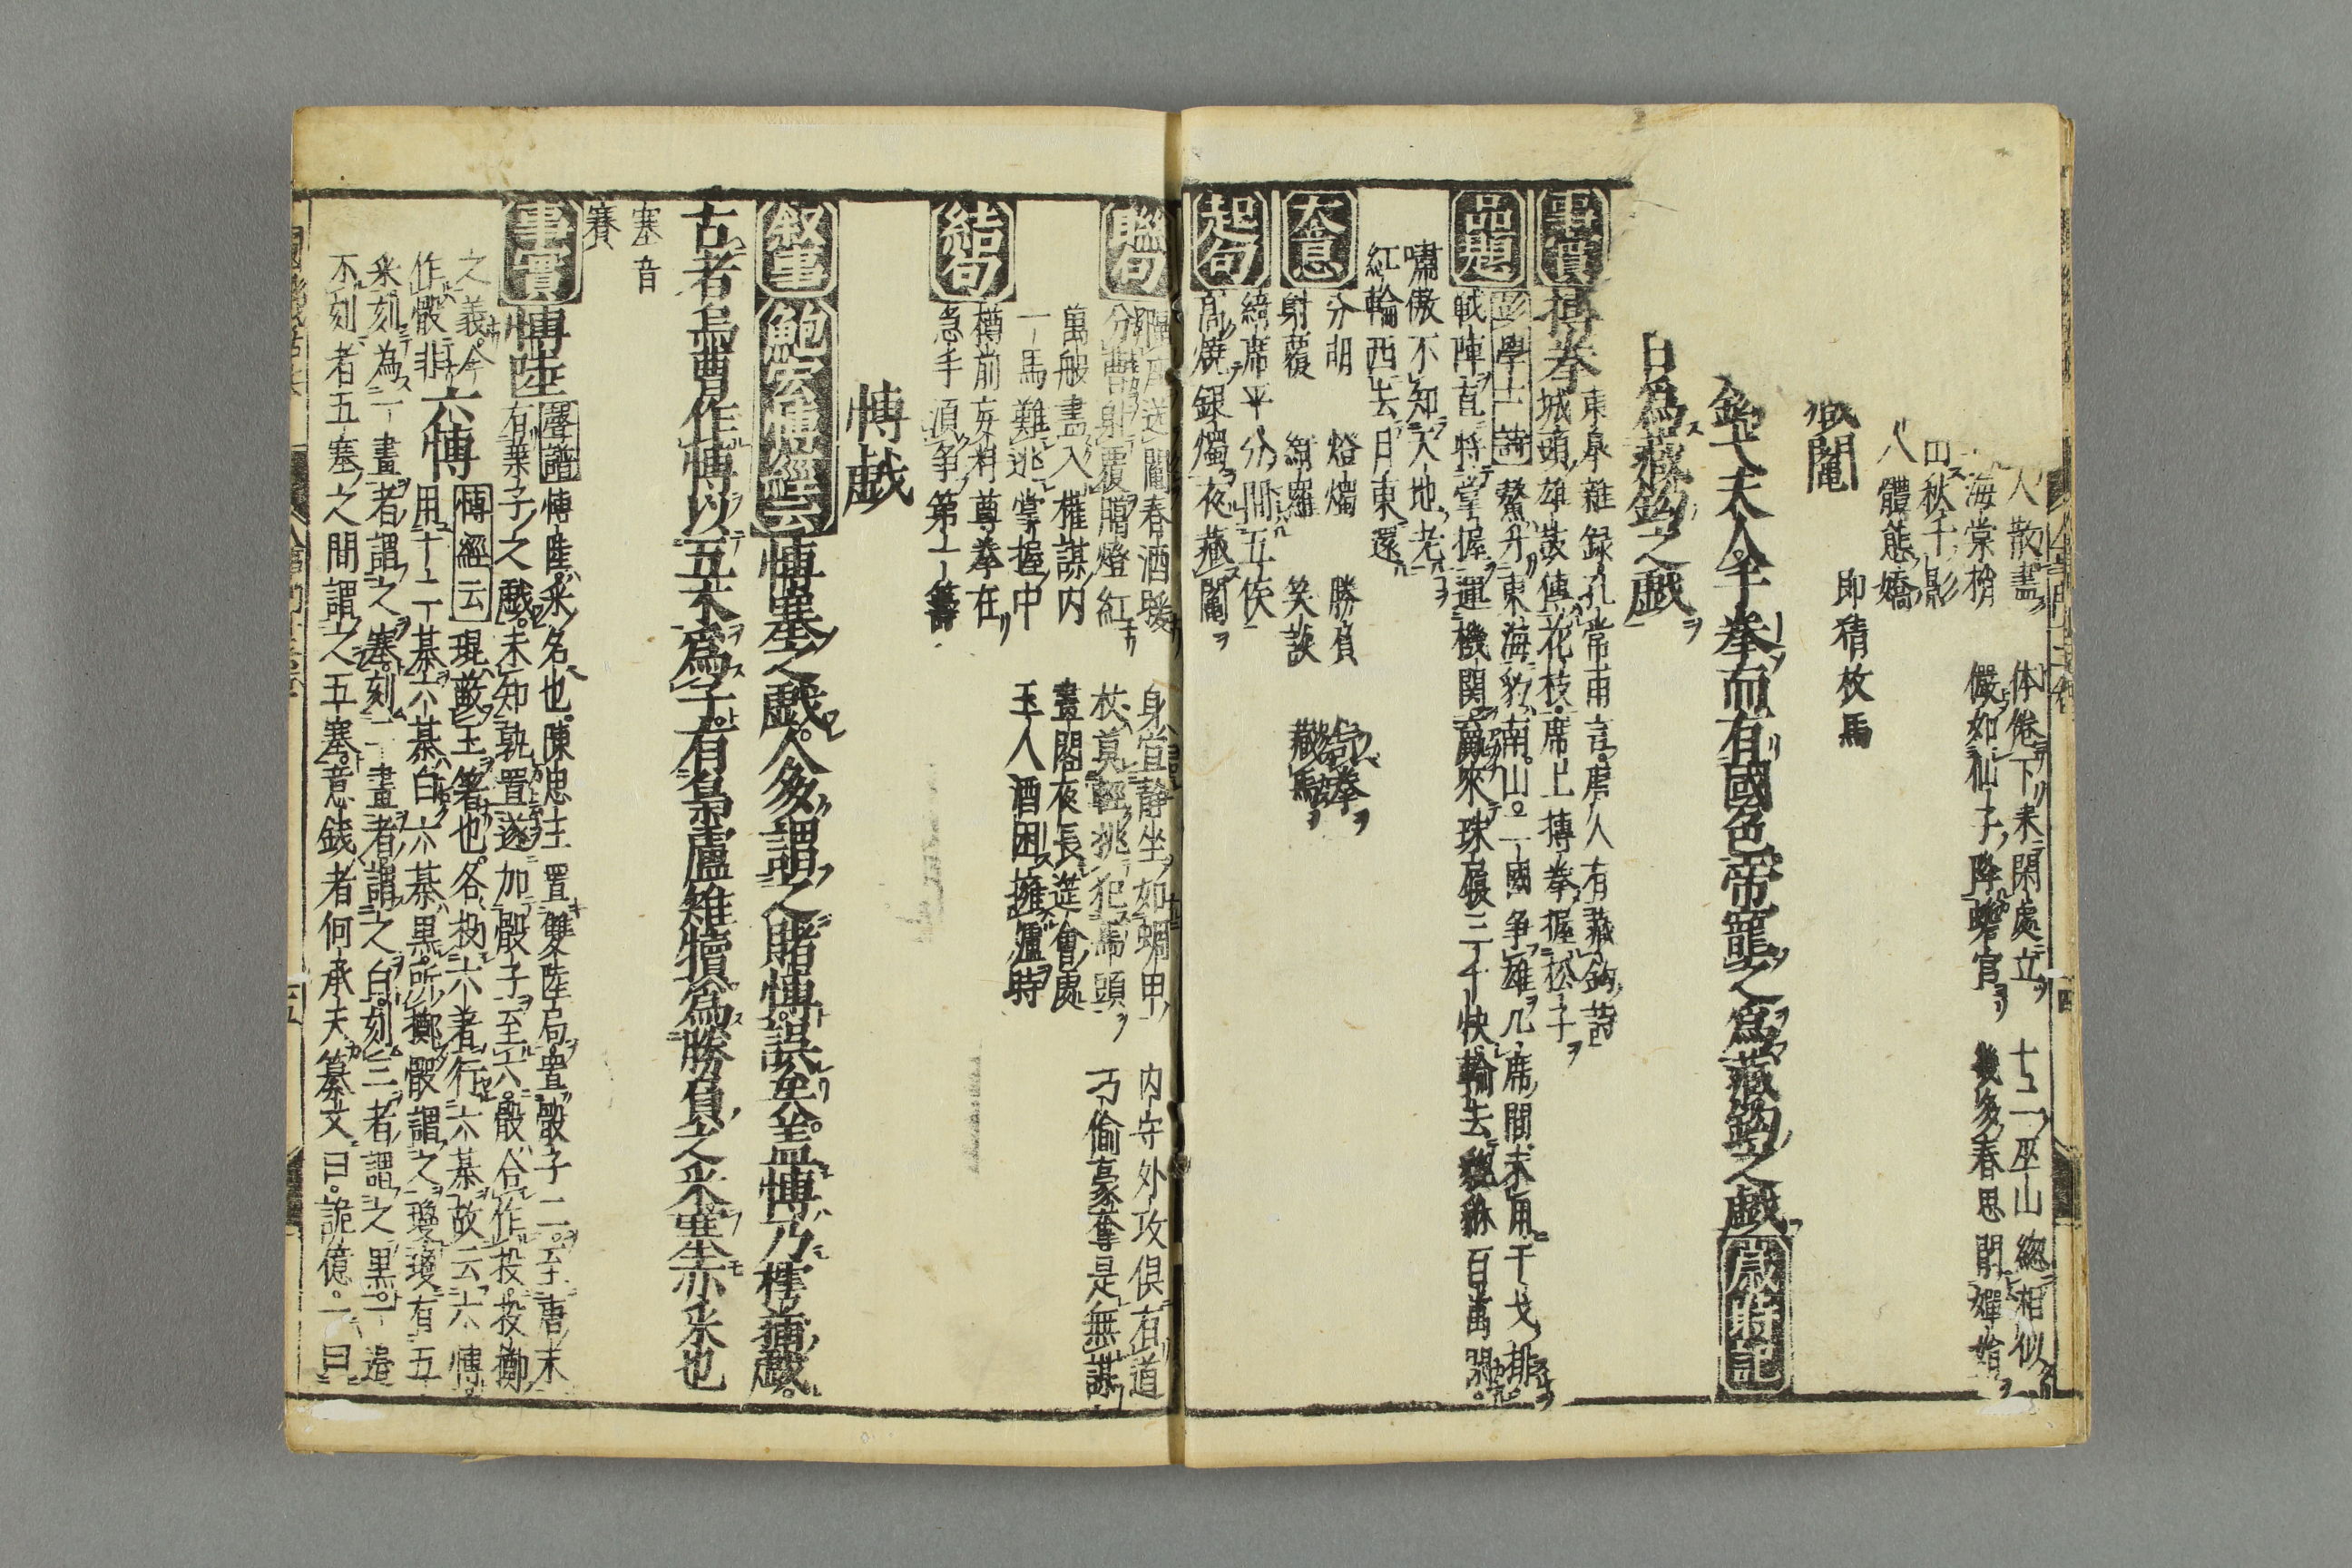 人散盡 体倦下來閑處立 十二巫山總相似
海棠梢 儼如仙子降蟾宮 幾多春思鬪嬋娟
出秋千影
人體態嬌
藏鬮 即猜枚馬
鉤弋夫人手拳而有國色帝寵之為藏鉤之戯 歲時記
曰為藏鉤之戯
事實 摶拳 東皐雜録孔常甫言唐人有藏鉤詩
城頭雄鼓傳花枝席上摶拳握松子
品題 彭學士詩 鰲丹東海豹南山。一國爭雄几席間未用干戈排
戰陣直將掌握運機関 來珠履三千快輸去 百萬
嘯傲不知天地老
紅輪西去月東還
大意 分朋 燈燭 勝負 拳
射覆 綺羅 笑談 藏馬
起句 綺席平分間五侯
高燒銀燭夜藏鬮
聯句 隔座送鬮春酒暖 身宜静坐如蜩甲 内守外攻俱有道
分曹射覆腊燈紅 杖莫輕挑犯馬頭 巧偷豪奪是無謀
萬般盡入權謀内 畫閣夜長筵會處
一馬難逃掌握中 玉人酒困擁爐時
結句 樽前妄料尊拳在
急手湏爭第一籌
慱戯
叙事 鮑宏慱經云 慱塞之戯。人多謂之賭慱。誤矣。盖慱乃樗蒱戯。
古者烏曹作慱以五木為子。有梟盧雉犢為勝負之采塞亦采也
塞音
賽
事實 慱陸 聲譜 慱陸采名也。陳思王置雙陸局置骰子二。至唐末
有葉子之戯。未知孰置遂加骰子至六。骰合作投。投擲
之義。今 六慱 慱經云 琨蔽玉箸也。各投六箸行六棊故云六慱。
作骰非 用十二棊六棊白六棊黒。所擲骰謂之瓊瓊有五
采刻為一畫者謂之塞。刻二畫者謂之白。刻三者謂之黒。一邉
不刻者五塞之間謂之五塞。意錢者何承天纂文曰。詭億。一曰